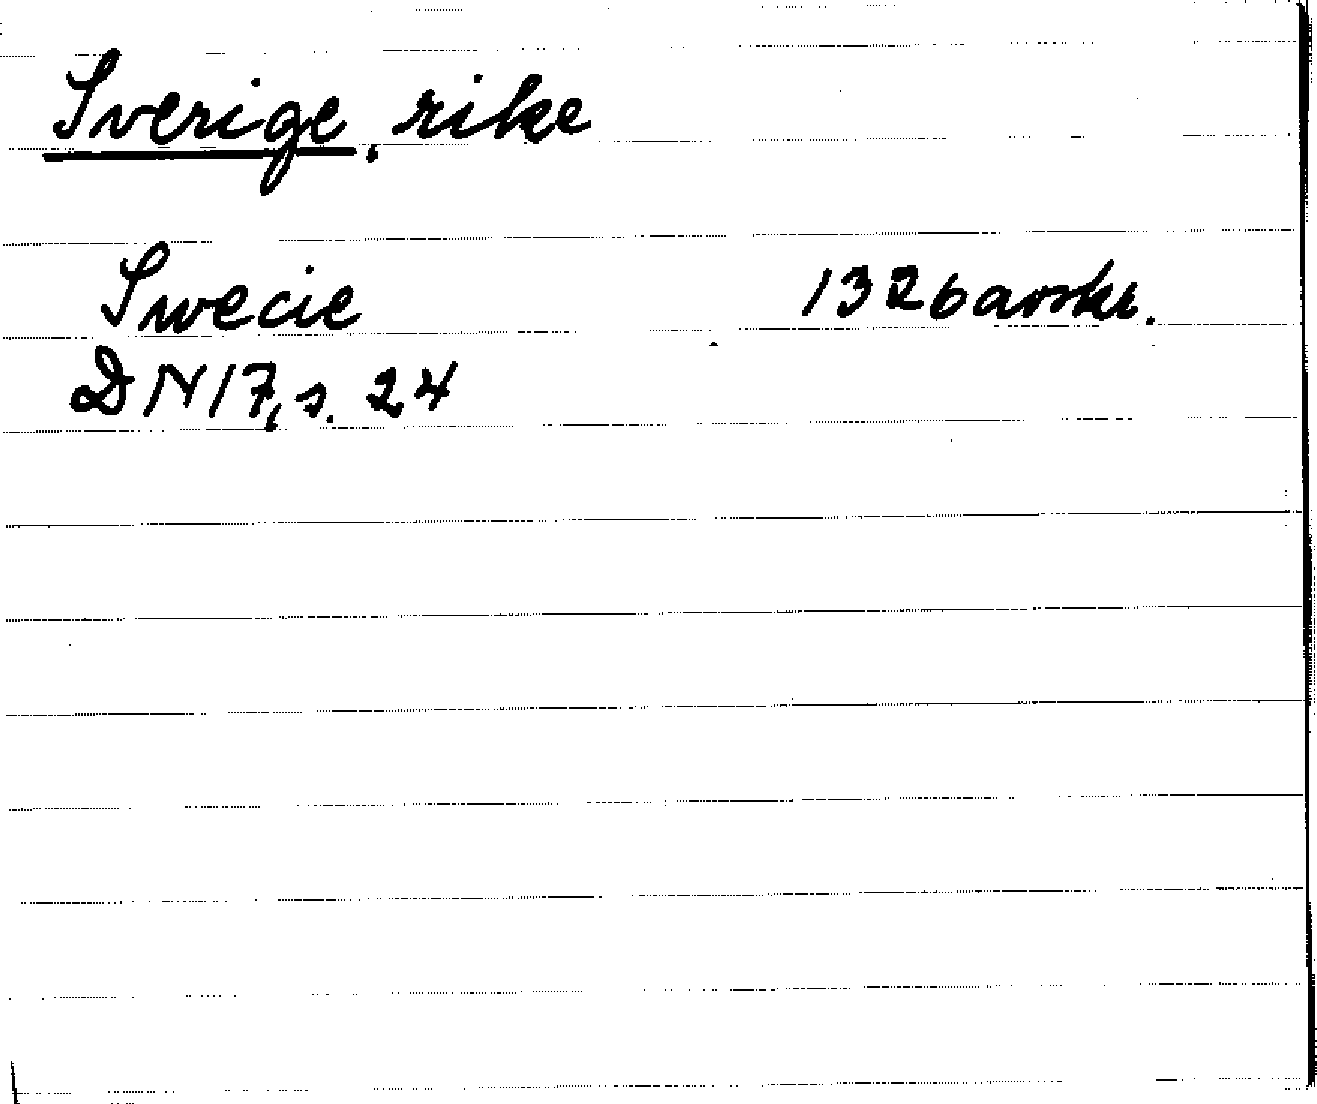 Sverige, rike
Swecie 1326 avskr.
DN 17, s. 24